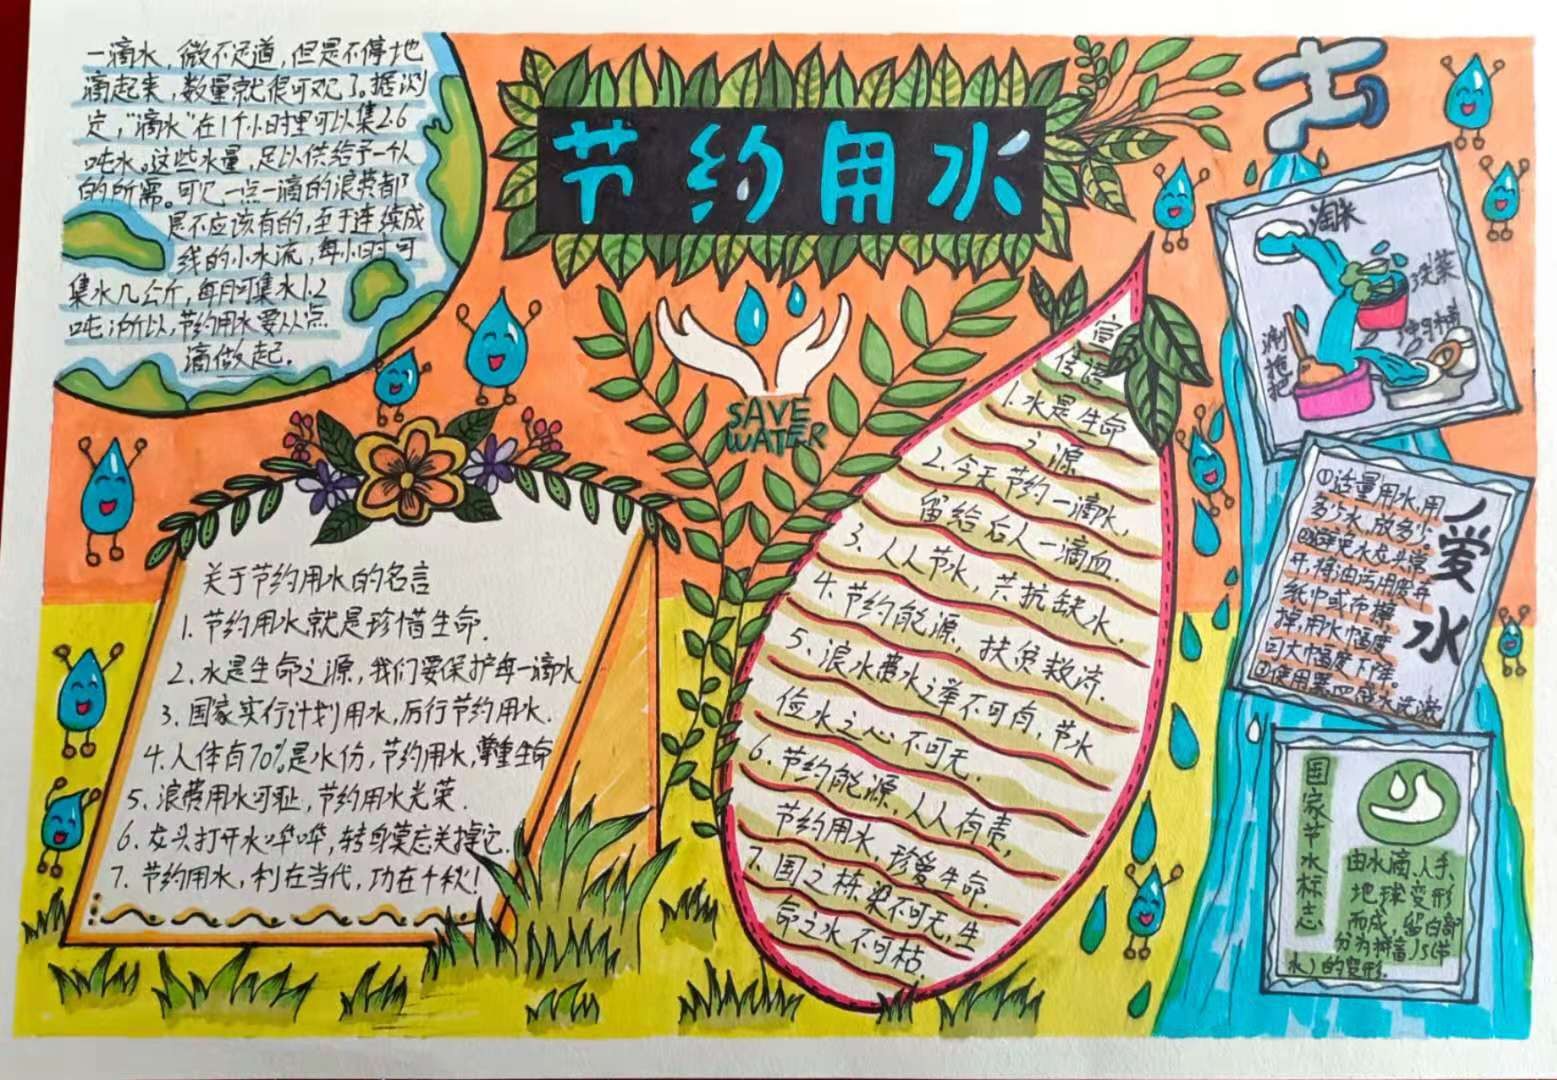 节约用水
一滴水，微不足道，但是不停地
滴起来，数量就很可观了。据测
定，"滴水"在1个小时里可以集2.6
吨水。这些水量，足以供给予一个人
的所需。可见一点一滴的浪费都
是不应该有的，至于连续成
线的小水流，每小时可
集水几公斤，每月可集水1.2
吨；所以，节约用水要从点
滴做起。
SAVE
WATER
关于节约用水的名言
1. 节约用水就是珍惜生命.
2. 水是生命之源，我们要保护每一滴水
3. 国家实行计划用水，厉行节约用水.
4. 人体有70%是水份，节约用水，尊重生命
5. 浪费用水可耻，节约用水光荣.
6. 龙头打开水哗哗，转身莫忘关掉它.
7. 节约用水，利在当代，功在千秋!
宣
传语
1. 水是生命
之源
2. 今天节约一滴水，
留给后人一滴血.
3. 人人节水，共抗缺水.
4. 节约能源，扶贫救济.
5. 浪水费水之举不可有，节水
俭水之心不可无.
6. 节约能源，人人有责，
节约用水，珍爱生命.
7. 国之栋梁不可无，生
命之水不可枯.
淘米
洗菜
涮拖把
爱水
①适量用水，用
多少水，放多少
开.将油污用废弃
纸巾或布擦
掉用水幅度
大幅度下降。
国家节水标志
由水滴、人手、
地球变形
而成，留白部
分为
水）的变形.